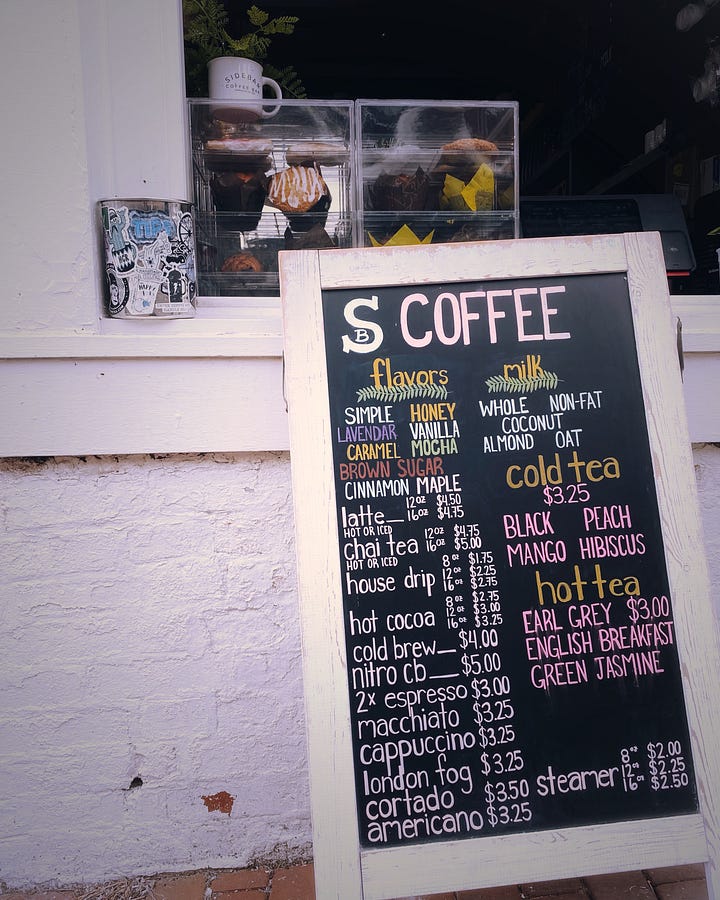 SIDEBAR
COFFEE BAR
S B COFFEE
flavors
SIMPLE HONEY
LAVENDAR VANILLA
CARAMEL MOCHA
BROWN SUGAR
CINNAMON MAPLE
latte 12oz $4.50
16oz $4.75
HOT OR ICED
chai tea 12oz $4.75
16oz $5.00
HOT OR ICED
house drip 8oz $1.75
12oz $2.25
16oz $2.75
hot cocoa 8oz $2.75
12oz $3.00
16oz $3.25
cold brew $4.00
nitro cb $5.00
2x espresso $3.00
macchiato $3.25
cappuccino $3.25
london fog $3.25
cortado $3.50
americano $3.25
milk
WHOLE NON-FAT
COCONUT
ALMOND OAT
cold tea
$3.25
BLACK PEACH
MANGO HIBISCUS
hot tea
EARL GREY $3.00
ENGLISH BREAKFAST
GREEN JASMINE
steamer 8oz $2.00
12oz $2.25
16oz $2.50